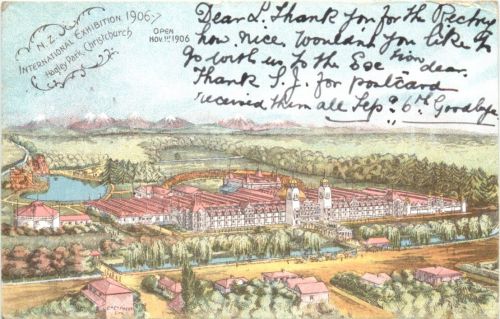 N.Z.
INTERNATIONAL EXHIBITION 1906-7
Hagley Park, Christchurch
OPEN
NOV. 1ST 1906
Dear L. Thank you for the Pectry
how nice. Wouldn't you like to
go with us to the Exe from dear.
Thank S.J. for postcard
received them all Sep. 6th Goodbye